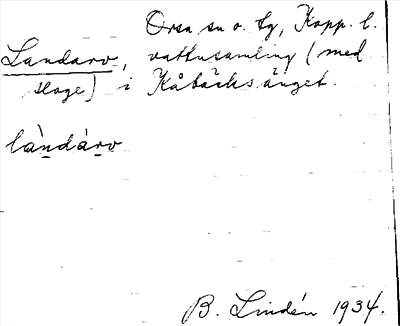 Orsa sn o. tg, Kopp. l.
Landarv, vattusamling (med
stoge) i Kåbäcksänget.
làndárv
B. Lindén 1934.